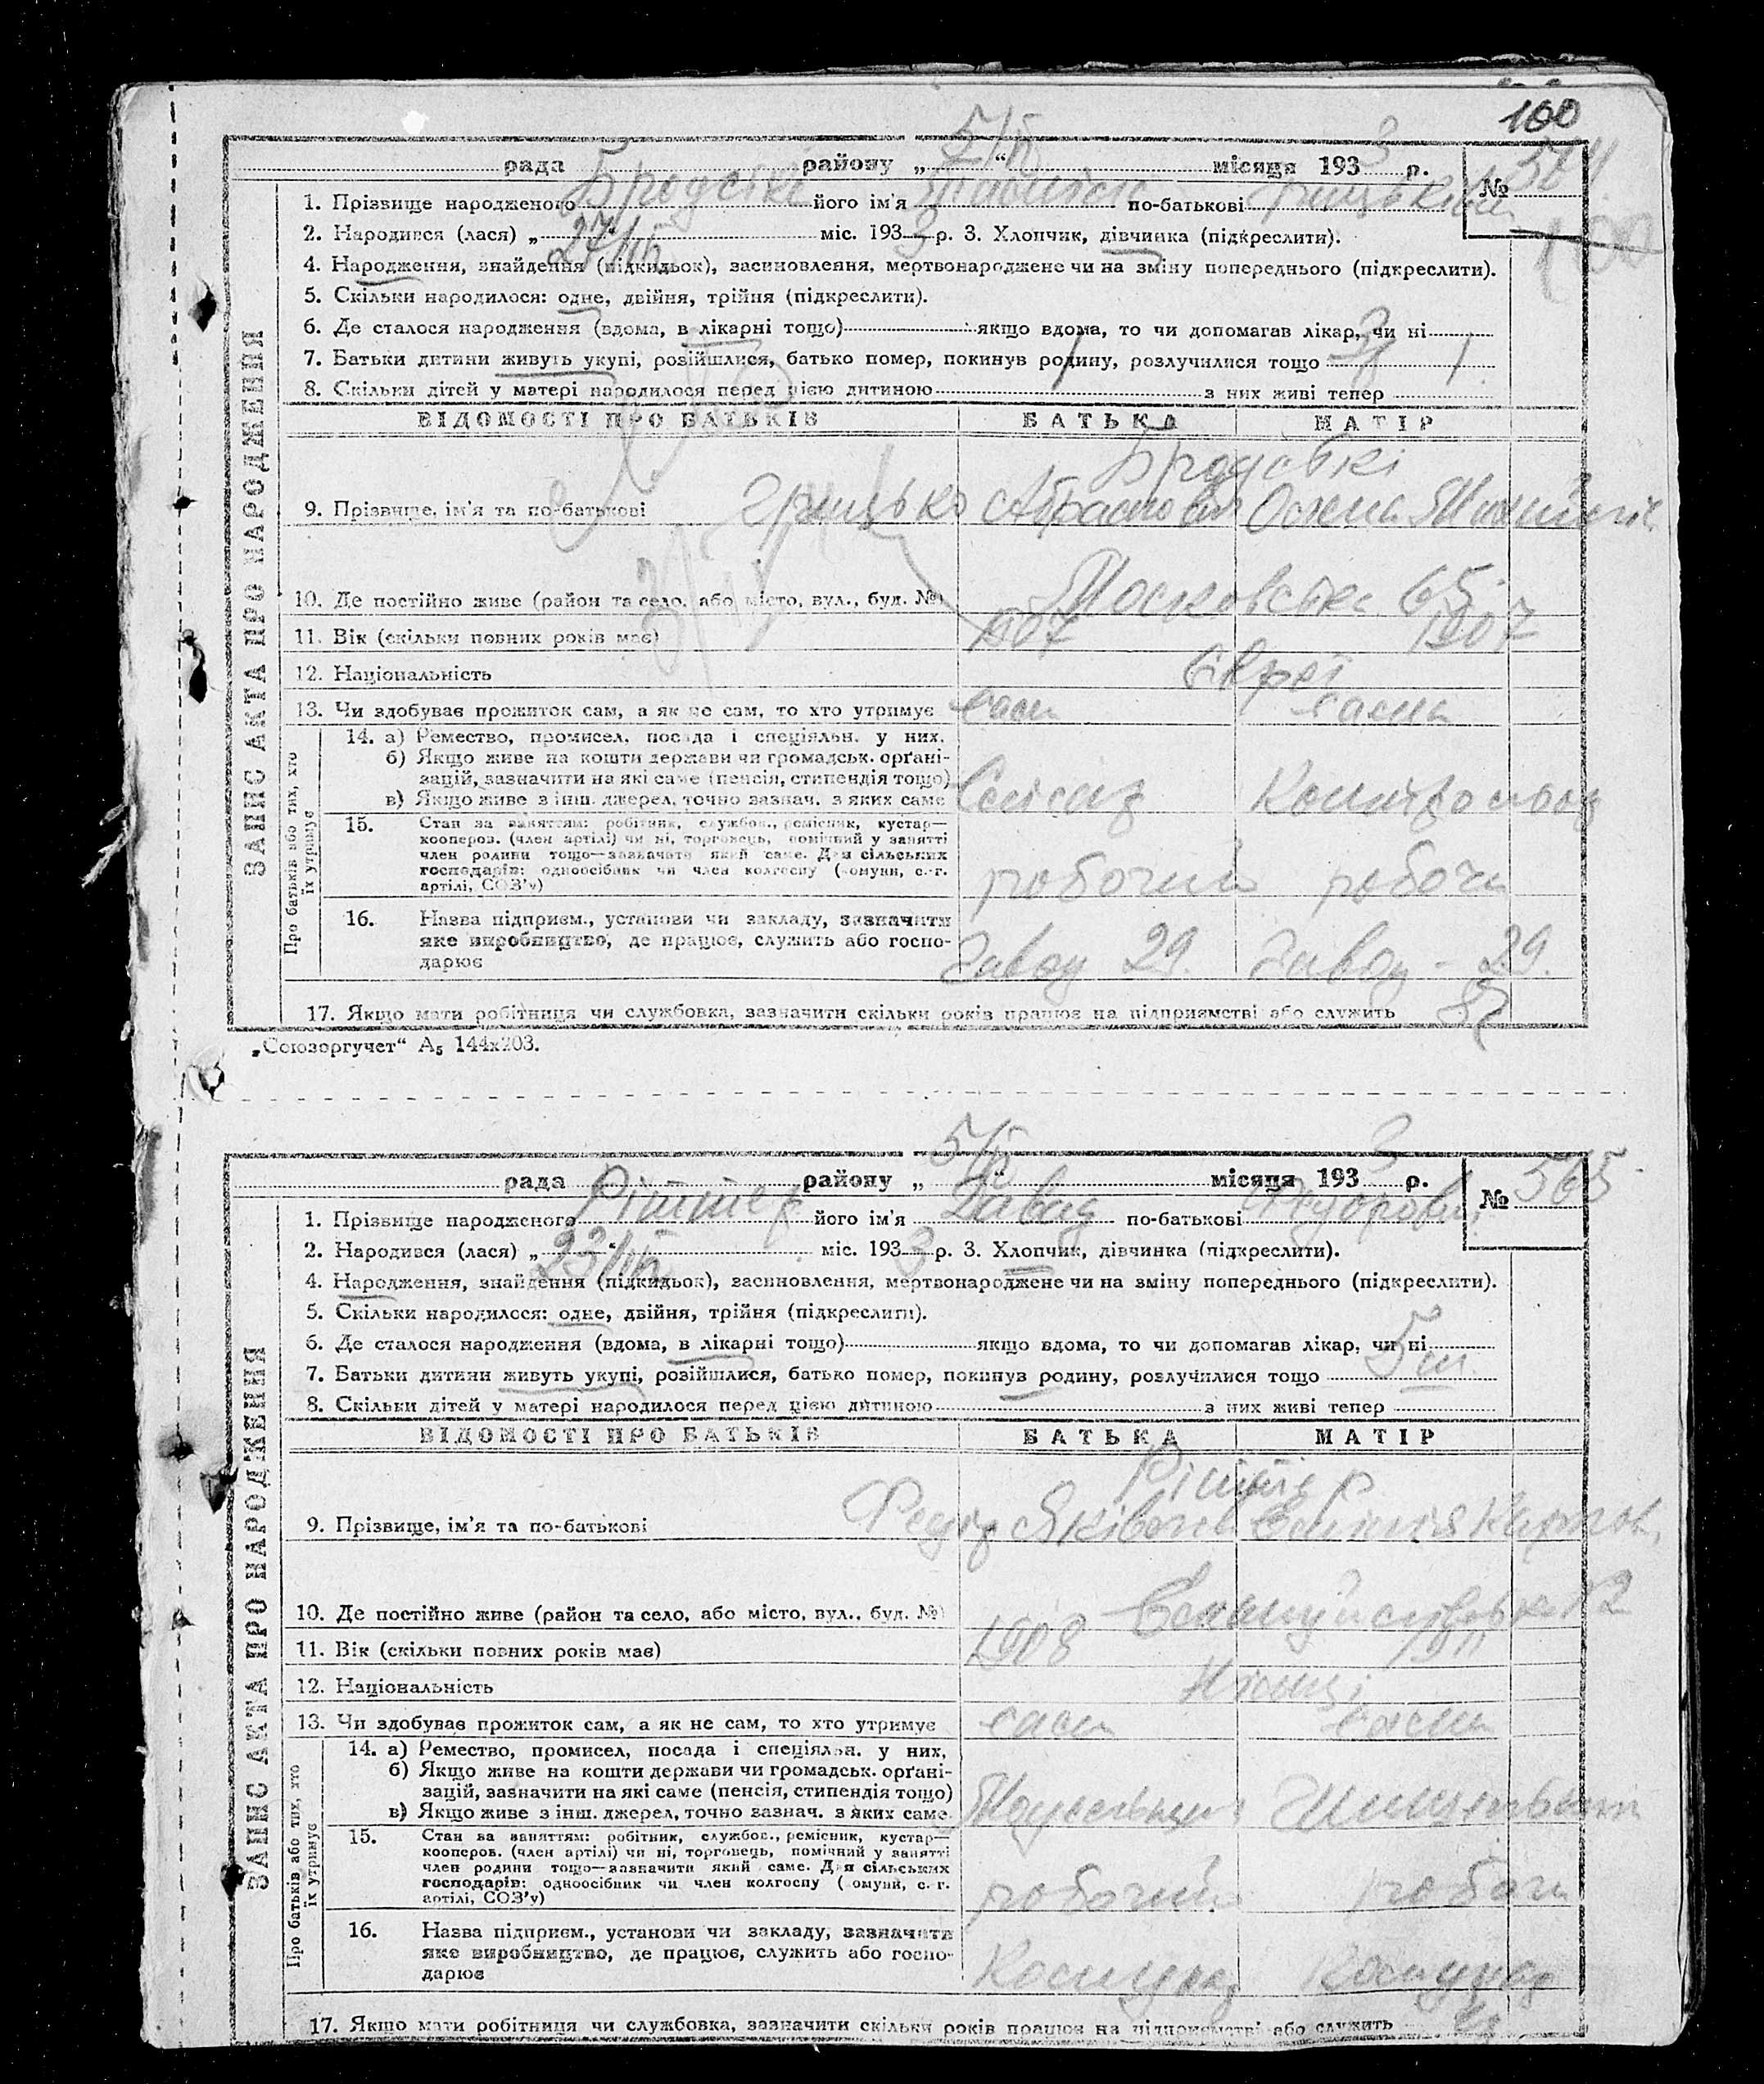 100
5/IV 3 564
рада району „ “ місяця 193 р. №
1. Прізвище народженого Бродські його ім'я по-батькові
100
2. Народився (лася) „ 27/III міс. 193 3 р. 3. Хлопчик, дівчинка (підкреслити).
4. Народження, знайдення (підкидьок), засиновлення, мертвонароджене чи на зміну попереднього (підкреслити).
5. Скільки народилося: одне, двійня, трійня (підкреслити).
6. Де сталося народження (вдома, в лікарні тощо) якщо вдома, то чи допомагав лікар, чи ні
7. Батьки дитини живуть укупі, розійшлися, батько помер, покинув родину, розлучилися тощо
8. Скільки дітей у матері народилося перед цією дитиною 1 з них живі тепер 1
ЗАПИС АКТА ПРО НАРОДЖЕННЯ
ВІДОМОСТІ ПРО БАТЬКІВ БАТЬКА МАТІР
Бродські
9. Прізвище, ім'я та по-батькові Грицько Абрамович
10. Де постійно живе (район та село, або місто, вул., буд. №) Московська 65
11. Вік (скільки повних років має) 1907 1907
12. Національність Євреї
13. Чи здобуває прожиток сам, а як не сам, то хто утримує сам сама
Про батьків або тих, хто їх утримує
14. а) Ремество, промисел, посада і спеціяльн. у них.
б) Якщо живе на кошти держави чи громадськ. орґані-
зацій, зазначити на які саме (пенсія, стипендія тощо)
в) Якщо живе з інш. джерел, точно зазнач. з яких саме Слюсар Контрольор
15. Стан за заняттям: робітник, службов., ремісник, кустар—
кооперов. (член артілі) чи ні, торговець, помічний у занятті
член родини тощо—зазначити який саме. Для сільських
господарів: одноосібник чи член колгоспу (комуни, с.-г.
артілі, СОЗ'у) робочий робоча
16. Назва підприєм., установи чи закладу, зазначити
яке виробництво, де працює, служить або госпо-
дарює Завод 29. Завод - 29.
17. Якщо мати робітниця чи службовка, зазначити скільки років працює на підприємстві або служить
„Союзоргучет“ А5 144х203.
5/IV 3 565
рада району „ “ місяця 193 р. №
1. Прізвище народженого Ріттер його ім'я Давид по-батькові Федорович
2. Народився (лася) „ 23/III міс. 193 3 р. 3. Хлопчик, дівчинка (підкреслити).
4. Народження, знайдення (підкидьок), засиновлення, мертвонароджене чи на зміну попереднього (підкреслити).
5. Скільки народилося: одне, двійня, трійня (підкреслити).
6. Де сталося народження (вдома, в лікарні тощо) якщо вдома, то чи допомагав лікар, чи ні
7. Батьки дитини живуть укупі, розійшлися, батько помер, покинув родину, розлучилися тощо
8. Скільки дітей у матері народилося перед цією дитиною – з них живі тепер
ЗАПИС АКТА ПРО НАРОДЖЕННЯ
ВІДОМОСТІ ПРО БАТЬКІВ БАТЬКА МАТІР
Ріттер
9. Прізвище, ім'я та по-батькові Федір Яківович
10. Де постійно живе (район та село, або місто, вул., буд. №) 12
11. Вік (скільки повних років має) 1908 1911
12. Національність Німці
13. Чи здобуває прожиток сам, а як не сам, то хто утримує сам сама
Про батьків або тих, хто їх утримує
14. а) Ремество, промисел, посада і спеціяльн. у них.
б) Якщо живе на кошти держави чи громадськ. орґані-
зацій, зазначити на які саме (пенсія, стипендія тощо)
в) Якщо живе з інш. джерел, точно зазнач. з яких саме
15. Стан за заняттям: робітник, службов., ремісник, кустар—
кооперов. (член артілі) чи ні, торговець, помічний у занятті
член родини тощо—зазначити який саме. Для сільських
господарів: одноосібник чи член колгоспу (комуни, с.-г.
артілі, СОЗ'у) робочий робоча
16. Назва підприєм., установи чи закладу, зазначити
яке виробництво, де працює, служить або госпо-
дарює Комунар Комунар
17. Якщо мати робітниця чи службовка, зазначити скільки років працює на підприємстві або служить